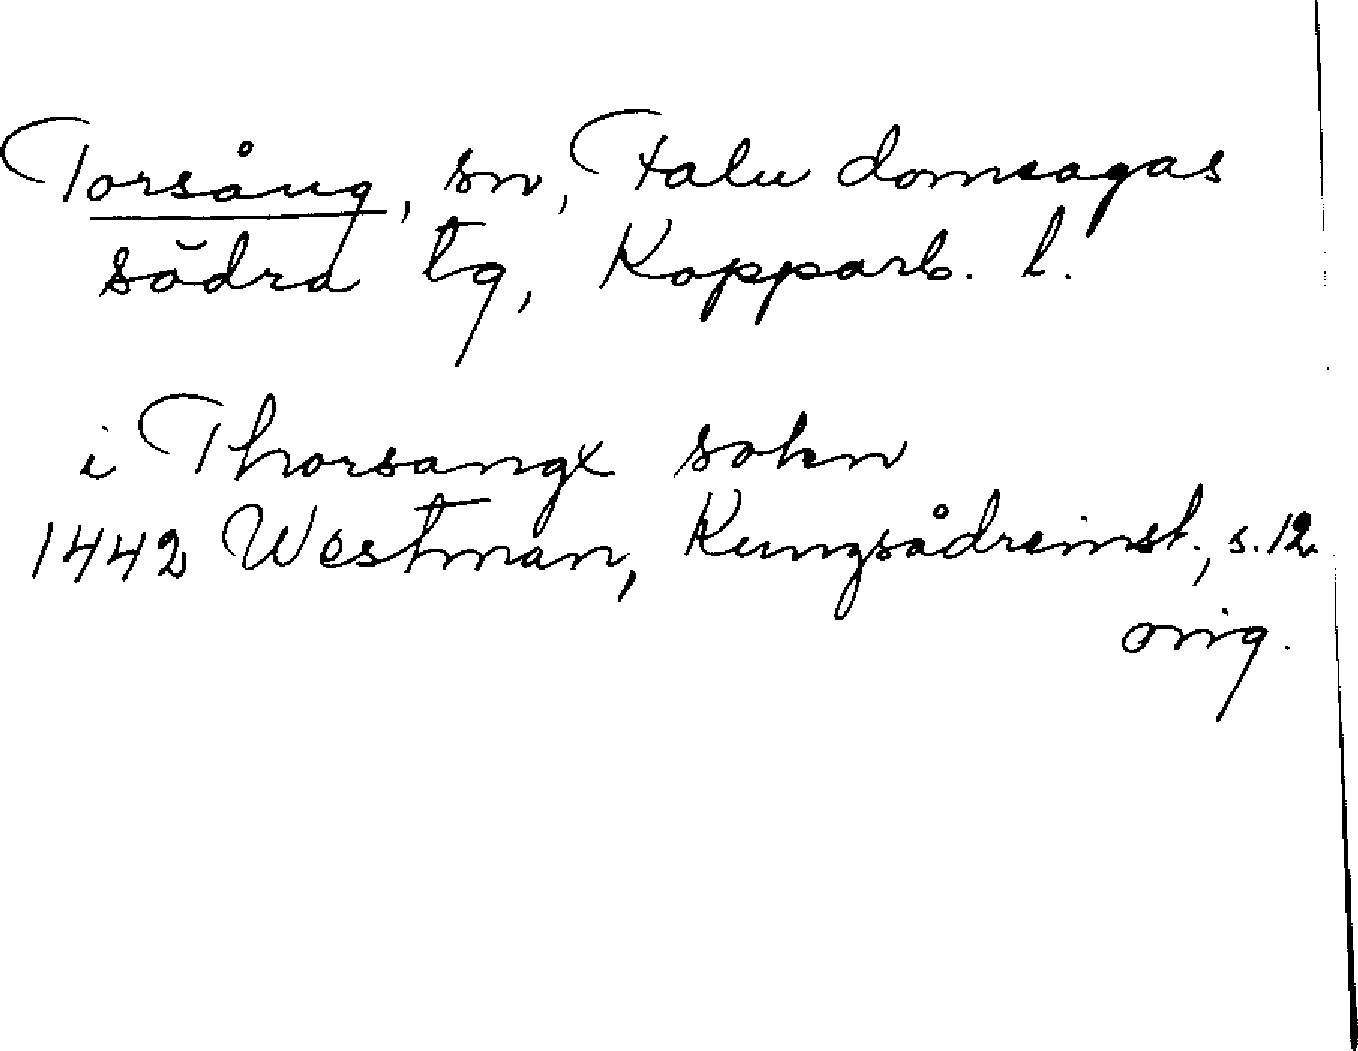 Torsång, sn, Falu domsagas
södra tg, Kopparb. l.
i Thorsangx sokn
1442 Westman, Kungsådreinst., s. 12.
orig.